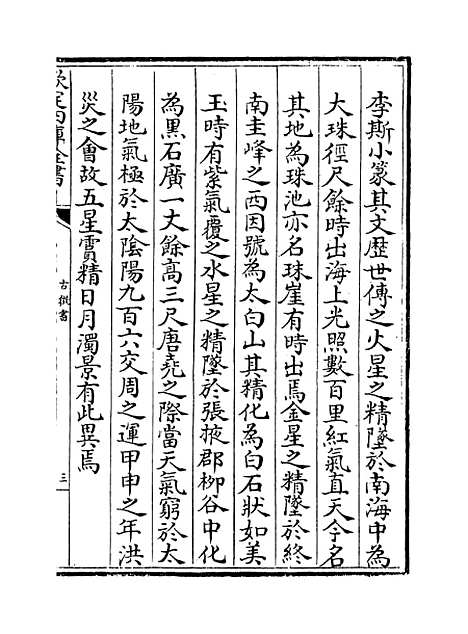 李斯小篆其文歴世傳之火星之精墜於南海中為
大珠徑尺餘時出海上光照數百里紅氣直天今名
其地為珠池亦名珠崖有時出焉金星之精墜於終
南圭峰之西因號為太白山其精化為白石狀如美
玉時有紫氣覆之水星之精墜於張掖郡柳谷中化
為黒石廣一丈餘高三尺唐堯之際當天氣窮於太
陽地氣極於太陰陽九百六交周之運甲申之年洪
災之會故五星霣精日月濁景有此異焉
欽定四庫全書
古微書
三